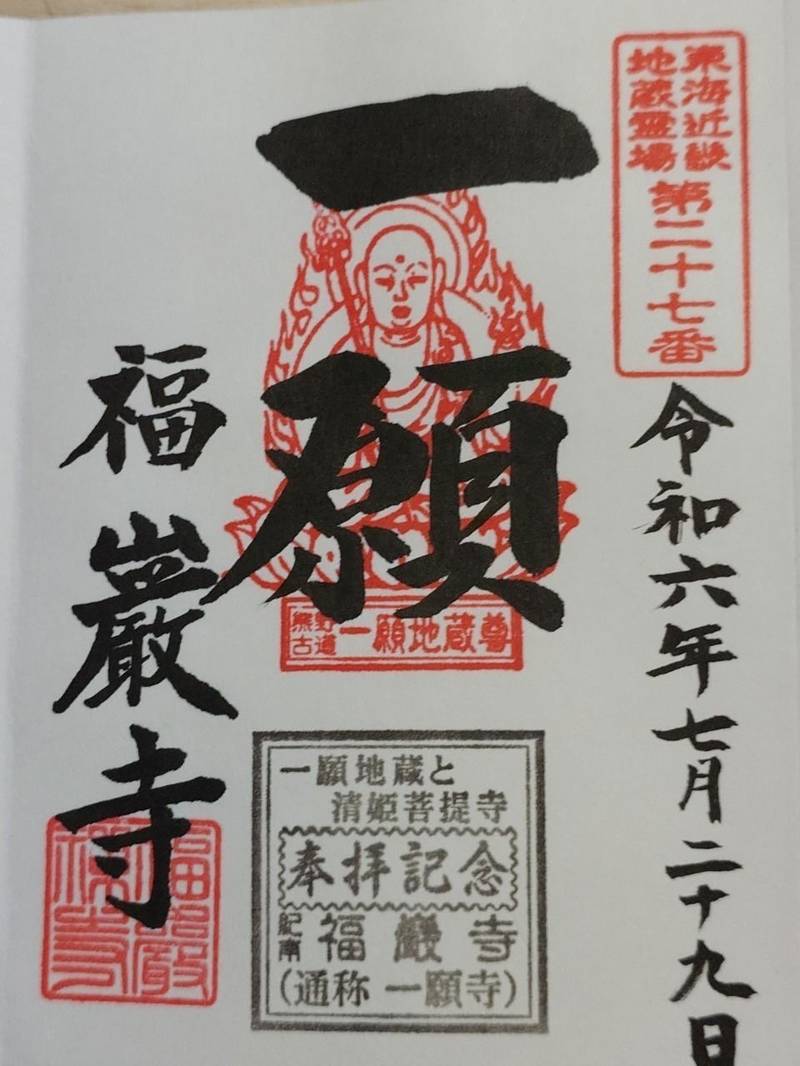 東海近畿
地蔵霊場
第二十七番
令和六年七月二十九日
一願
熊野
古道
一願地蔵尊
一願地蔵と
清姫菩提寺
奉拝記念
紀南
福巖寺
(通称 一願寺)
福巖寺